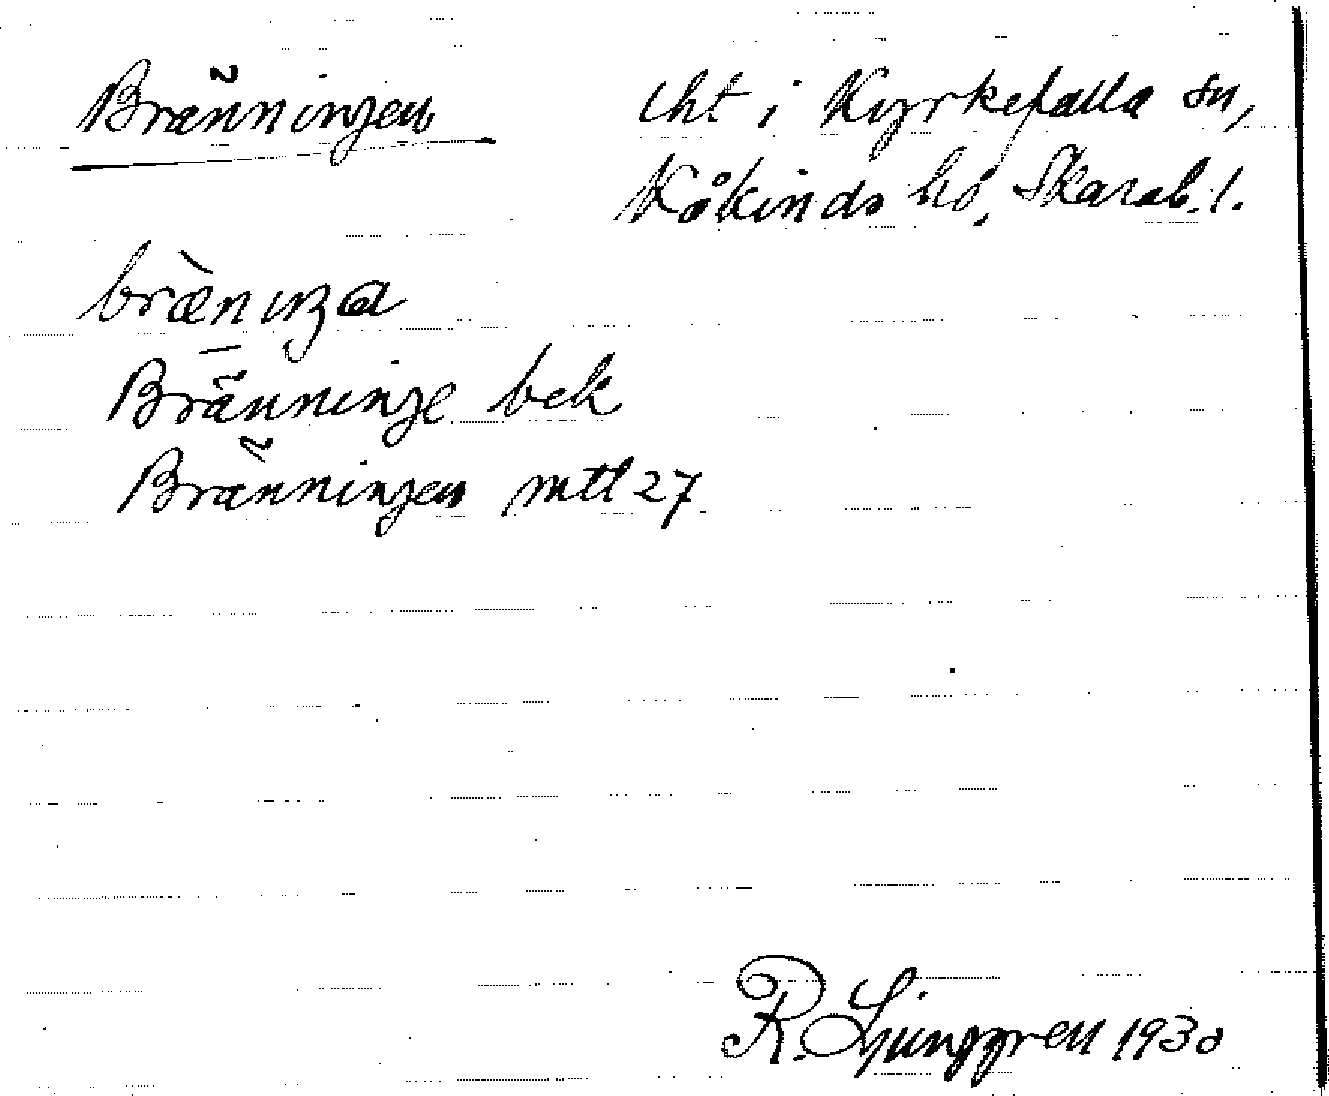 Bränningen
lht i Kyrkefalla sn,
Kåkinds hd, Skarab. l.
brænıŋa
Bränninge bek
Bränningen mtl 27
R. Ljunggren 1930